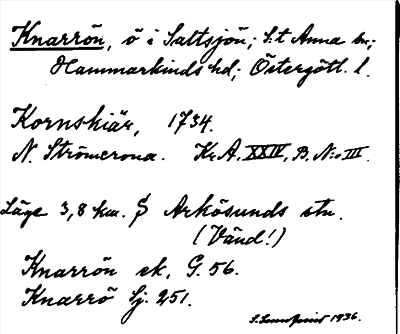 Knarrön, ö i Saltsjön; S:t Anna sn;
Hammarkinds hd; Östergötl. l.
Kornskiär, 1734.
N. Strömcrona. Kr.A. XXIV, B. N:o III.
Läge 3,8 km. S Arkösunds stn.
(Vänd!)
Knarrön ek, G. 56.
Knarrö Sj. 251.
1936.